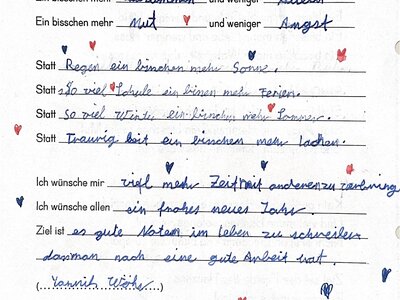 Ein bisschen mehr und weniger
Ein bisschen mehr Mut und weniger Angst
Statt Regen ein bischen mehr Sonne.
Statt So viel Schule ein binen mehr Ferien.
Statt So viel Winter ein bischen mehr Sommer.
Statt Traurig keit ein bischen mehr lachen.
Ich wünsche mir viel mehr Zeit mit anderen zu verbring
Ich wünsche allen ein frohes neues Jahr.
Ziel ist es gute Noten im leben zu schreiben
das man nach eine gute Arbeit hat.
(Yannik )